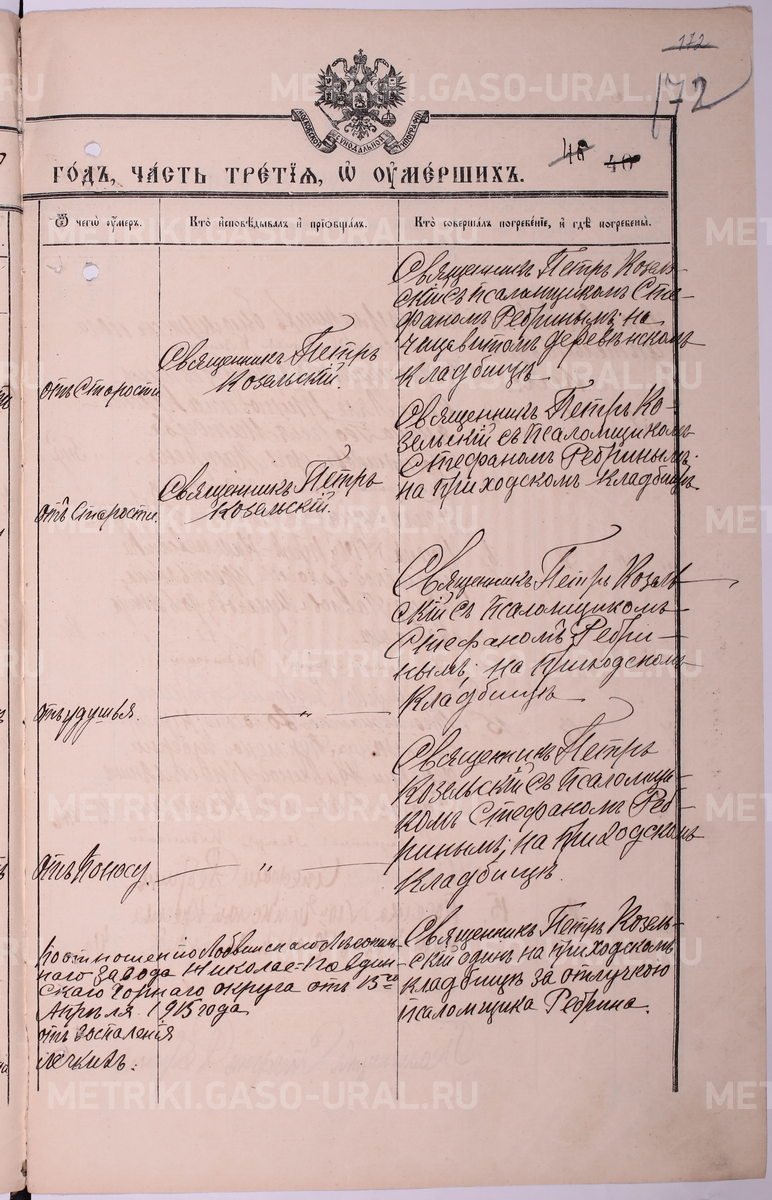 172
172
МОСКОВСКОЙ СѴНОДАЛЬНОЙ ТИПОГРАФІИ
46 40
ГОДЪ, ЧАСТЬ ТРЕТІЯ, Ѿ ОУМЕРШИХЪ.
Ѿ чегѡ оумеръ.
Кто исповѣдывалъ и прїобщалъ.
Кто совершалъ погребенїе, и гдѣ погребены.
отъ Старости
Священникъ Петръ
Козельскій.
Священникъ Петръ Козель-
скій съ псаломщикомъ Сте-
фаномъ Ребринымъ; на
Чащавитомъ деревенскомъ
кладбищѣ
отъ Старости.
Священникъ Петръ
Козельскій.
Священникъ Петръ Ко-
зельскій съ псаломщикомъ
Стефаномъ Ребринымъ.
на приходскомъ кладбищѣ.
отъ удушья.
— „ —
Священникъ Петръ Козель-
скій съ псаломщикомъ
Стефаномъ Ребри-
нымъ; на приходскомъ
кладбищѣ
отъ Поносу.
— „ —
Священникъ Петръ
Козельскій съ псаломщи-
комъ Стефаномъ Реб-
ринымъ; на приходскомъ
кладбищѣ.
по отношенію Лобвинскаго Лѣсопиль-
наго завода Николае-Павдин-
скаго Горнаго округа отъ 15го
Апрѣля 1915 года
отъ воспаленія
легкихъ.
Священникъ Петръ Козель-
скій одинъ на приходскомъ
кладбищѣ за отлучкою
псаломщика Ребрина.
METRIKI.GASO-URAL.RU